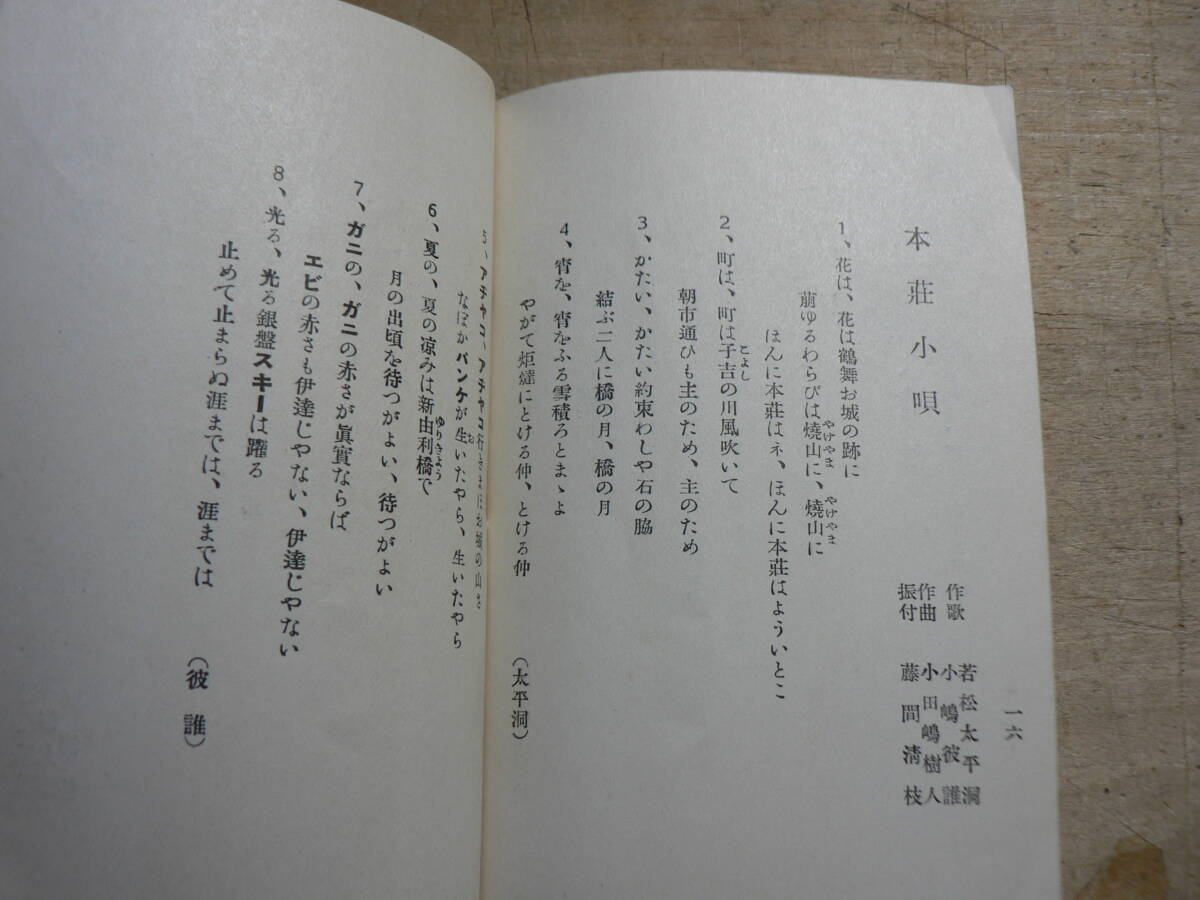 一六
本莊小唄
作歌 若松太平洞
小嶋彼誰
作曲 小田嶋樹人
振付 藤間淸枝
1、花は、花は鶴舞お城の跡に
萠ゆるわらびは燒山に、燒山に
やけやま やけやま
ほんに本莊はネ、ほんに本莊はよういとこ
2、町は、町は子吉の川風吹いて
とよし
朝市通ひも主のため、主のため
3、かたい、かたい約束わしや石の脇
結ぶ二人に橋の月、橋の月
4、宵を、宵をふる雪積ろとまゝよ
やがて炬燵にとける仲、とける仲
（太平洞）
5、アチャコ、アチャコ行きまほお城の山さ
なぼかバンケが生いたやら、生いたやら
お
6、夏の、夏の凉みは新由利橋で
ゆりきよう
月の出頃を待つがよい、待つがよい
7、ガニの、ガニの赤さが眞實ならば
エビの赤さも伊達じやない、伊達じやない
8、光る、光る銀盤スキーは躍る
止めて止まらぬ涯までは、涯までは
（彼誰）